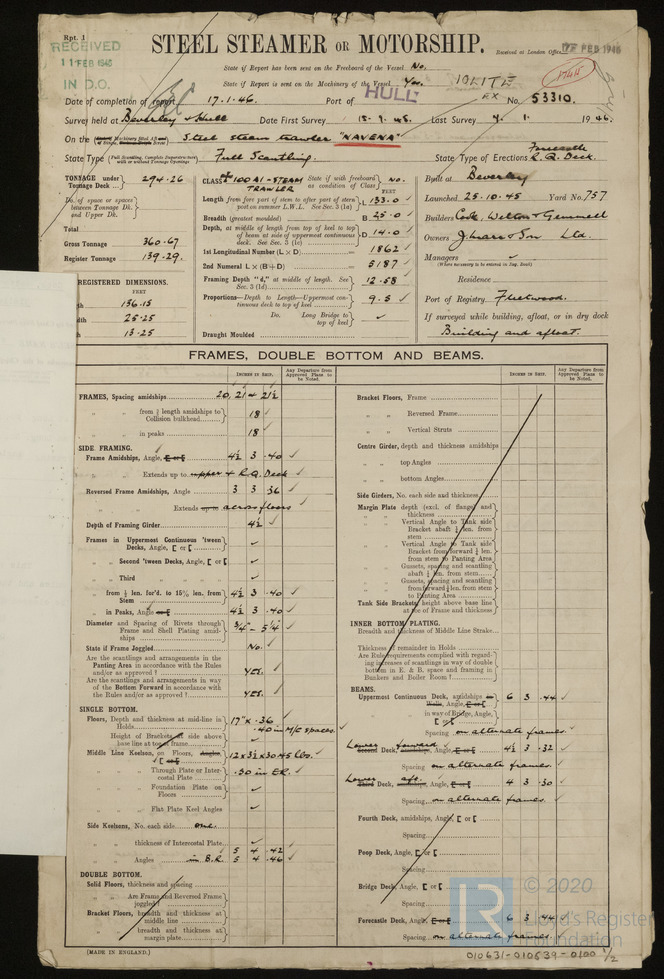 Rpt. 1
RECEIVED
11 FEB 1946
IN D.O.
STEEL STEAMER OR MOTORSHIP.
Received at London Office FEB 1946
State if Report has been sent on the Freeboard of the Vessel No.
State if Report is sent on the Machinery of the Vessel Yes.
IOLITE
EX
Date of completion of report 17.1.46. Port of HULL No. 53310.
Survey held at Beverley & Hull Date First Survey Last Survey 1946.
On the Steel steam trawler "NAVENA"
State Type Full Scantling. State Type of Erections Forecastle R.Q. Deck.
TONNAGE under Tonnage Deck ... 294.26
Do. of space or spaces between Tonnage Dk. and Upper Dk.
Total
Gross Tonnage 360.67
Register Tonnage 139.29.
REGISTERED DIMENSIONS.
FEET
136.15
25.25
13.25
CLASS + 100 A1 - STEAM TRAWLER State if with freeboard as condition of Class No.
FEET
Length from fore part of stem to after part of stern post on summer L.W.L. See Sec. 3 (1a) L 133.0
Breadth (greatest moulded) B 25.0
Depth, at middle of length from top of keel to top of beam at side of uppermost continuous deck. See Sec. 3 (1c) D 14.0
1st Longitudinal Number (L × D) 1862
2nd Numeral L × (B + D) 5187
Framing Depth "d," at middle of length. See Sec. 3 (1d) 12.58
Proportions—Depth to Length—Uppermost continuous deck to top of keel 9.5
Do. Long Bridge to top of keel
Draught Moulded
Built at Beverley
Launched 25.10.45 Yard No. 757
Builders Cook, Welton & Gemmell
Owners J. Marr & Son Ltd.
Managers
(Where necessary to be entered in Reg. Book)
Residence
Port of Registry Fleetwood.
If surveyed while building, afloat, or in dry dock
Building and afloat.
FRAMES, DOUBLE BOTTOM AND BEAMS.
INCHES IN SHIP.
Any Departure from Approved Plans to be Noted.
FRAMES, Spacing amidships 20, 21 & 21½
" " from ⅗ length amidships to Collision bulkhead 18
" " in peaks 18
SIDE FRAMING.
Frame Amidships, Angle, 4½ 3 .40
" " Extends up to R.Q. Deck
Reversed Frame Amidships, Angle 3 3 .36
" " Extends across floors
Depth of Framing Girder 4½
Frames in Uppermost Continuous 'tween Decks, Angle, [ or [
" Second 'tween Decks, Angle, [ or [
" Third " "
" from ⅗ len. for'd. to 15% len. from Stem 4½ 3 .40
" in Peaks, Angle 4½ 3 .40
Diameter and Spacing of Rivets through Frame and Shell Plating amidships ¾ - 5¼
State if Frame Joggled No.
Are the scantlings and arrangements in the Panting Area in accordance with the Rules and/or as approved? YES.
Are the scantlings and arrangements in way of the Bottom Forward in accordance with the Rules and/or as approved? YES.
SINGLE BOTTOM.
Floors, Depth and thickness at mid-line in Holds 17" x .36
.40 in M/C spaces.
Height of Brackets at side above base line at toe of frame
Middle Line Keelson, on Floors, 12 x 3½ x 30.45 lbs.
" " Through Plate or Intercostal Plate .30 in E.R.
" " Foundation Plate on Floors
" " Flat Plate Keel Angles
Side Keelsons, No. each side one
" " thickness of Intercostal Plate
" " Angles 5 4 .42
in B.R. 5 4 .46
DOUBLE BOTTOM.
Solid Floors, thickness and spacing
" " Are Frame and Reversed Frame joggled?
Bracket Floors, breadth and thickness at middle line
" " breadth and thickness at margin plate
(MADE IN ENGLAND.)
INCHES IN SHIP.
Any Departure from Approved Plans to be Noted.
Bracket Floors, Frame
" " Reversed Frame
" " Vertical Struts
Centre Girder, depth and thickness amidships
" " top Angles
" " bottom Angles
Side Girders, No. each side and thickness
Margin Plate depth (excl. of flange) and thickness
" " Vertical Angle to Tank side Bracket abaft ¼ len. from stem
" " Vertical Angle to Tank side Bracket from forward ¼ len. from stem to Panting Area
" " Gussets, spacing and scantling abaft ¼ len. from stem
" " Gussets, spacing and scantling from forward ¼ len. from stem to Panting Area
Tank Side Brackets, height above base line at toe of Frame and thickness
INNER BOTTOM PLATING.
Breadth and thickness of Middle Line Strake
Thickness of remainder in Holds
Are Rule requirements complied with regarding increases of scantlings in way of double bottom in E. & B. space and framing in Bunkers and Boiler Room?
BEAMS.
Uppermost Continuous Deck, amidships 6 3 .44
" " in way of Bridge, Angle, [ or [
Spacing on alternate frames.
Lower Deck, forward 4½ 3 .32
Spacing on alternate frames.
Lower Deck, aft. 4 3 .30
Spacing on alternate frames.
Fourth Deck, amidships, Angle, [ or [
Spacing
Poop Deck, Angle, [ or [
Spacing
Bridge Deck, Angle, [ or [
Spacing
Forecastle Deck, Angle, 6 3 .44
Spacing on alternate frames.
© 2020
Lloyd's Register
Foundation
010631-010639-0100 1/2